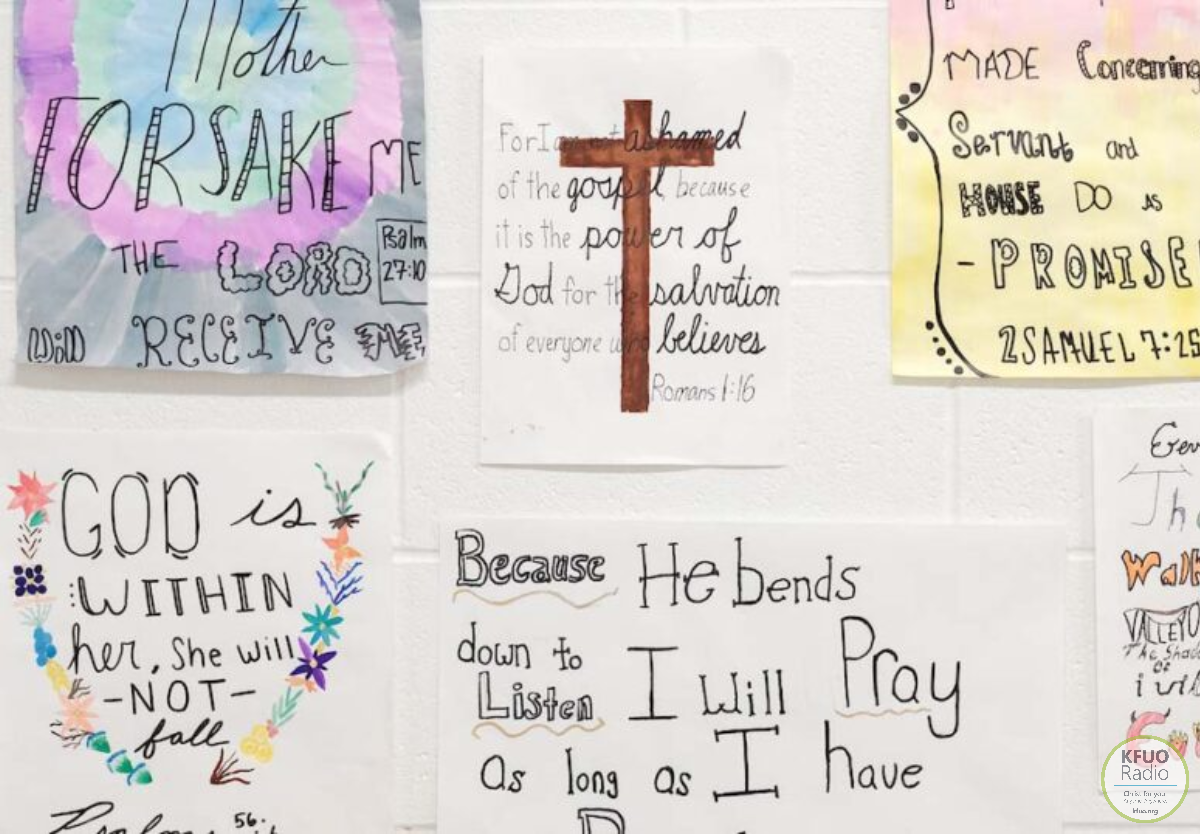 Mother
FORSAKE ME
THE LORD
Psalm
27:10
Will RECEIVE ME
For I am not ashamed
of the gospel because
it is the power of
God for the salvation
of everyone who believes
Romans 1:16
MADE Concerning
Servant and
HOUSE DO AS
- PROMISE
2 SAMUEL 7:25
GOD is
WITHIN
her, She will
- NOT -
fall
56.
Because He bends
down to
Listen I Will Pray
As long as I have
Walk
VALLEY O
The Shad
OF
i wil
KFUO
Radio
Christ for you
kfuo.org